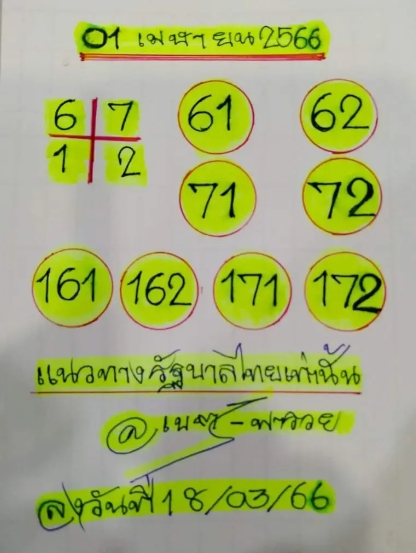 01 เมษายน 2566
6 7 61 62
1 2
71 72
161 162 171 172
แนวทางรัฐบาลไทยเท่านั้น
@
ลงวันที่ 18/03/66